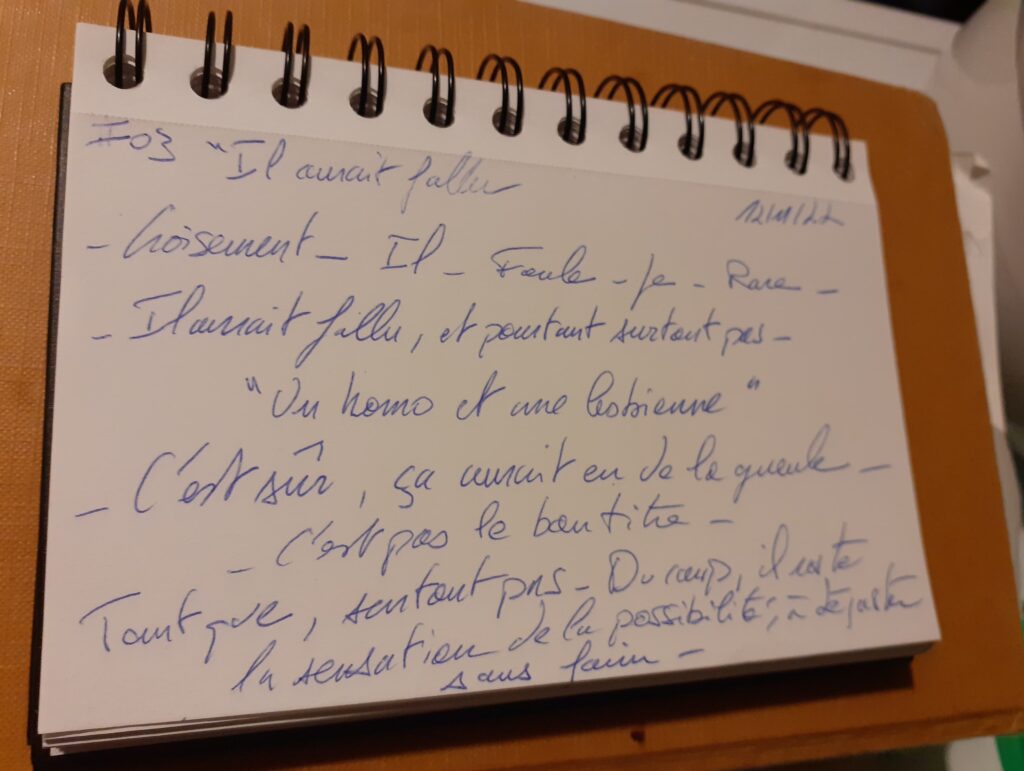 #03 "Il aurait fallu
12/11/22
- Croisement - Il - Foule - Je - Rare -
- Il aurait fallu, et pourtant surtout pas -
"Un homo et une lesbienne"
- C'est sûr, ça aurait eu de la gueule -
- C'est pas le bon titre -
Tant que, surtout pas - Du coup, il reste
la sensation de la possibilité, à déguster
sans faim -